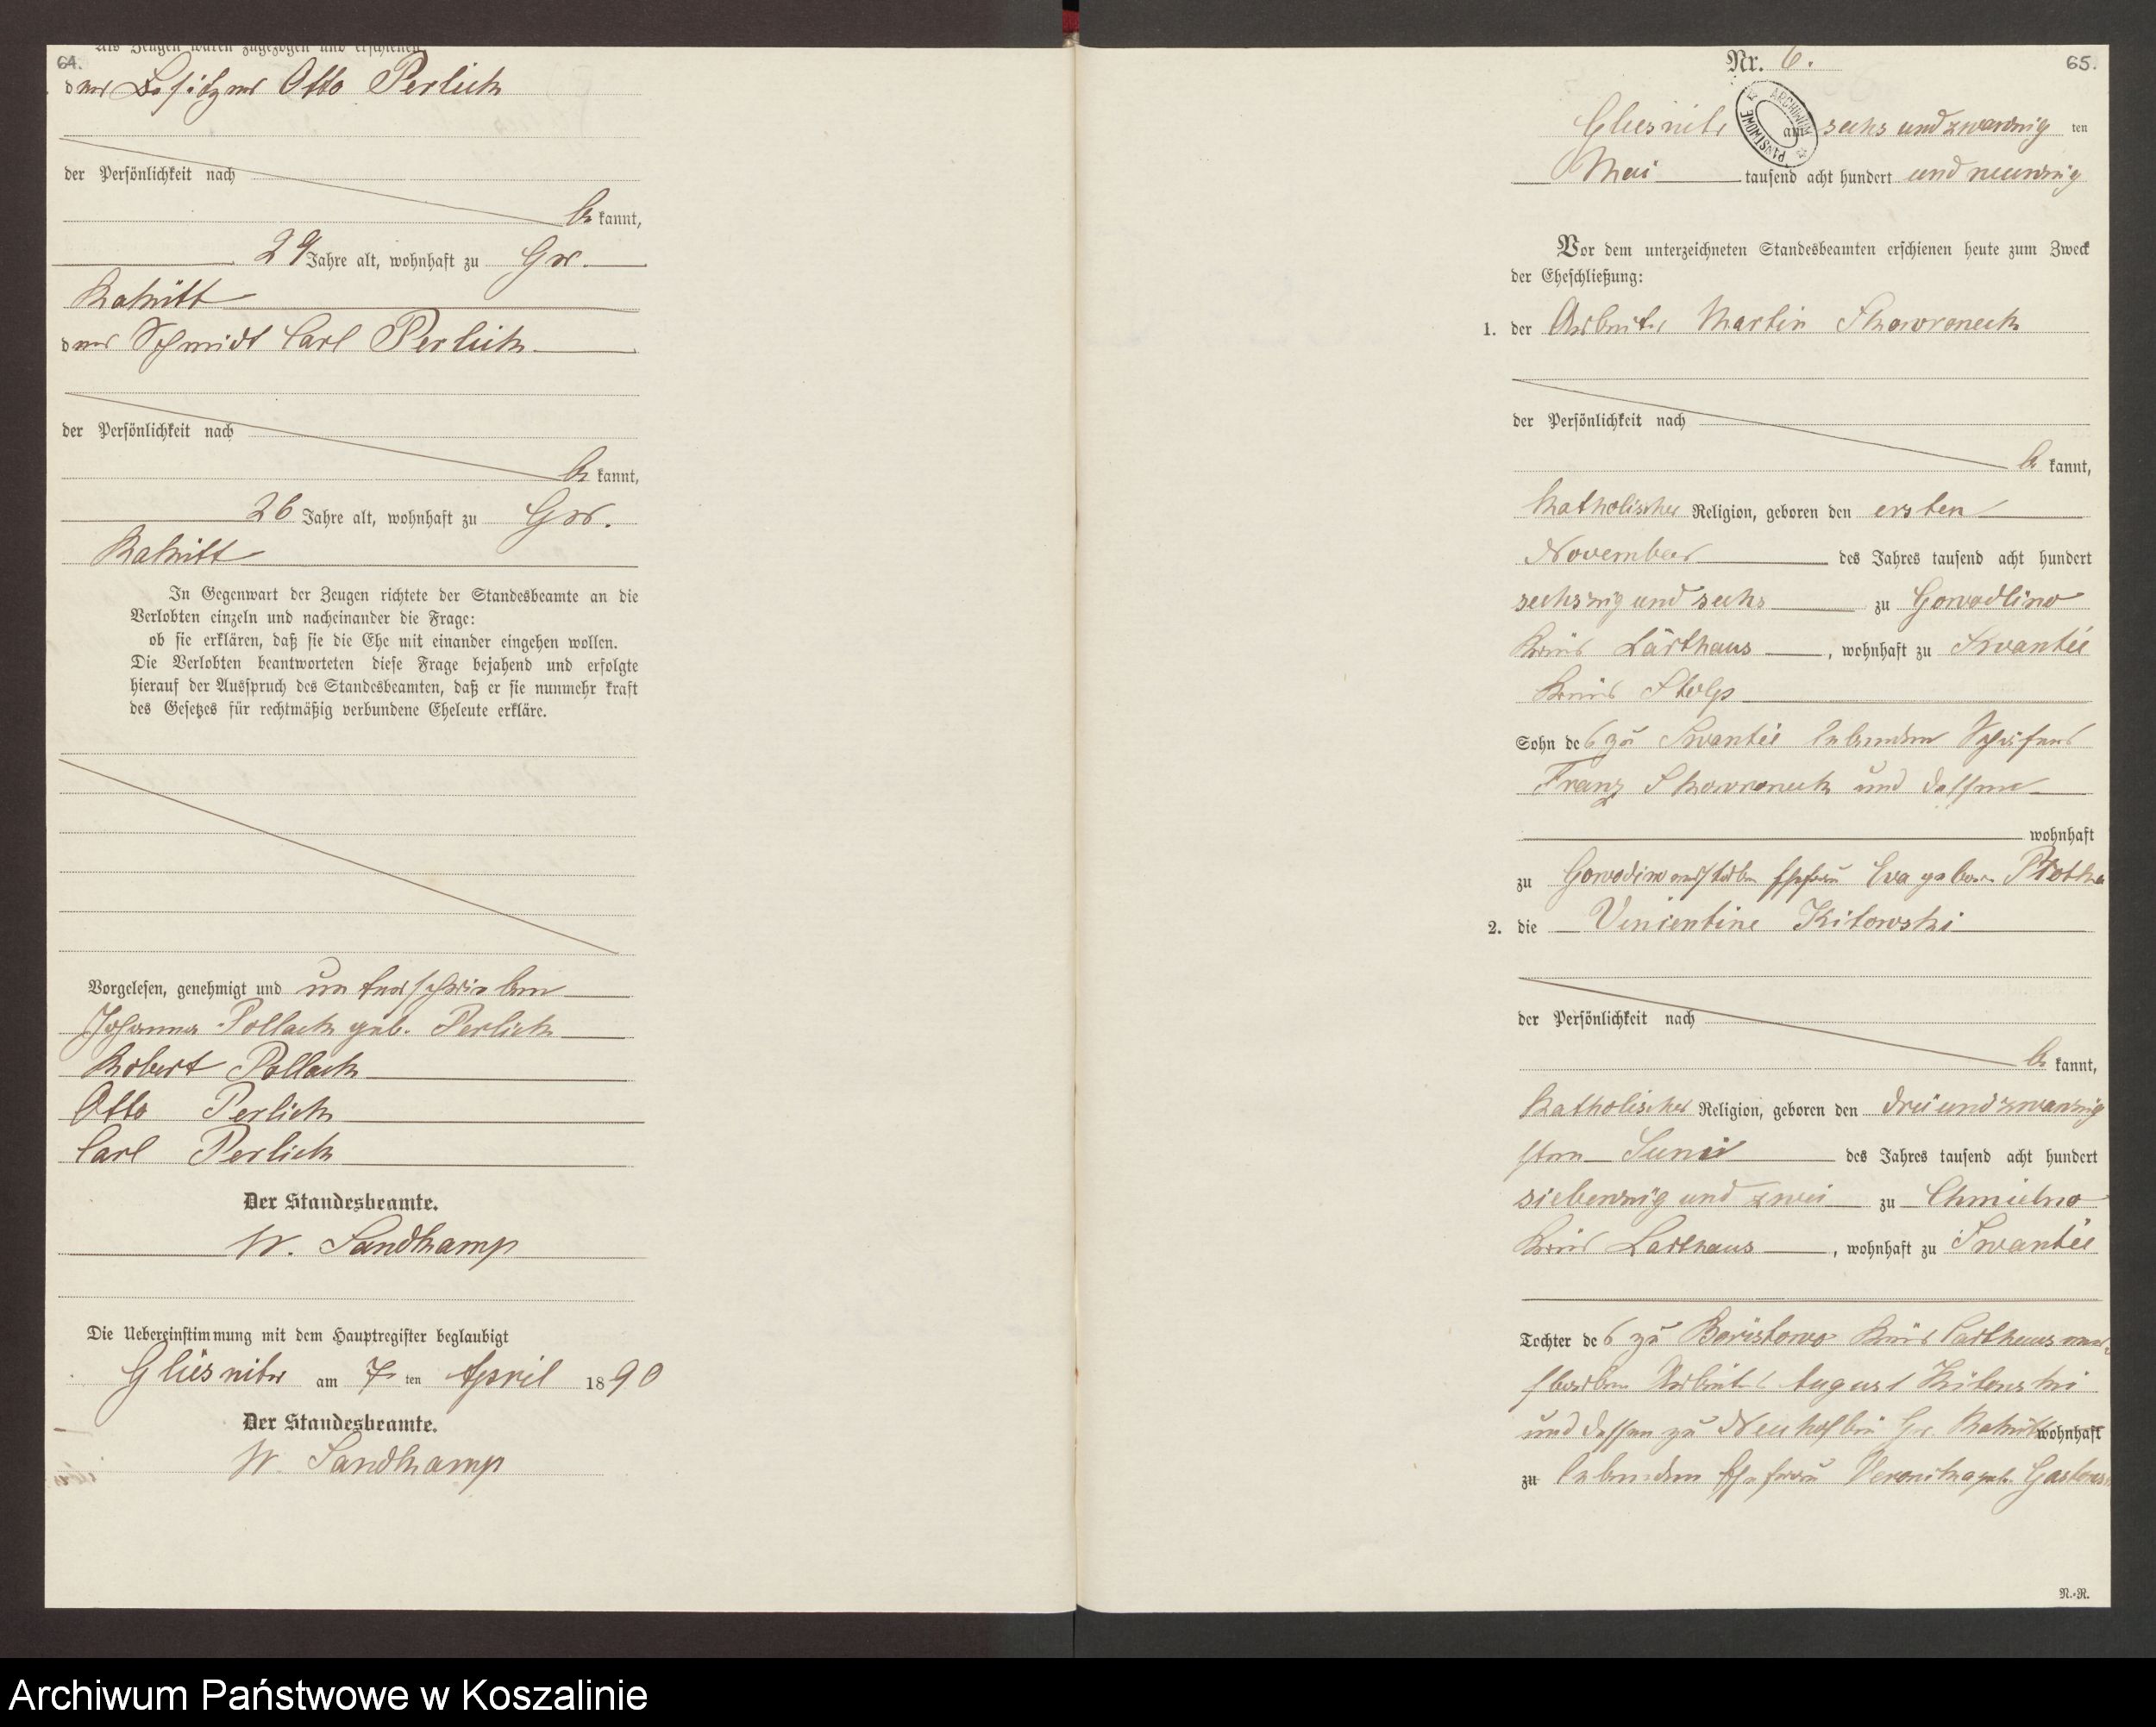 Als Zeugen waren zugezogen und erschienen:
64.
der Besitzer Otto Perlick
der Persönlichkeit nach
be kannt,
29 Jahre alt, wohnhaft zu Gr.
Rakitt
der Schmidt Carl Perlick
der Persönlichkeit nach
be kannt,
26 Jahre alt, wohnhaft zu Gr.
Rakitt
In Gegenwart der Zeugen richtete der Standesbeamte an die
Verlobten einzeln und nacheinander die Frage:
ob sie erklären, daß sie die Ehe mit einander eingehen wollen.
Die Verlobten beantworteten diese Frage bejahend und erfolgte
hierauf der Ausspruch des Standesbeamten, daß er sie nunmehr kraft
des Gesetzes für rechtmäßig verbundene Eheleute erkläre.
Vorgelesen, genehmigt und unterschrieben
Johanna Pollack geb. Perlick
Robert Pollack
Otto Perlick
Carl Perlick
Der Standesbeamte.
W. Sandkamp
Die Uebereinstimmung mit dem Hauptregister beglaubigt
Gliesnitz am 7 ten April 1890
Der Standesbeamte.
W. Sandkamp
Nr. 6.
65.
ARCHIWUM PAŃSTWOWE
Gliesnitz am sechs und zwanzig ten
Mai tausend acht hundert und neunzig
Vor dem unterzeichneten Standesbeamten erschienen heute zum Zweck
der Eheschließung:
1. der Arbeiter Martin Skowroneck
der Persönlichkeit nach
be kannt,
Katholischer Religion, geboren den ersten
November des Jahres tausend acht hundert
sechszig und sechs zu Gowodlino
Kreis Carthaus, wohnhaft zu Swantee
Kreis Stolp
Sohn des zu Swantee lebenden Schäfers
Franz Skowroneck und dessen
wohnhaft
zu verstorben Ehefrau Eva geboren
2. die Kitowski
der Persönlichkeit nach
be kannt,
Katholischer Religion, geboren den dreiundzwanzig
sten Juni des Jahres tausend acht hundert
siebenzig und zwei zu Chmielno
Kreis Carthaus, wohnhaft zu Swantee
Tochter des zu Kreis Carthaus ver-
storbenen Arbeiters August Kitowski
und dessen zu Neuhof bei Gr. Rakitt wohnhaft
zu lebenden Ehefrau Veronika geb.
N.-R.
Archiwum Państwowe w Koszalinie